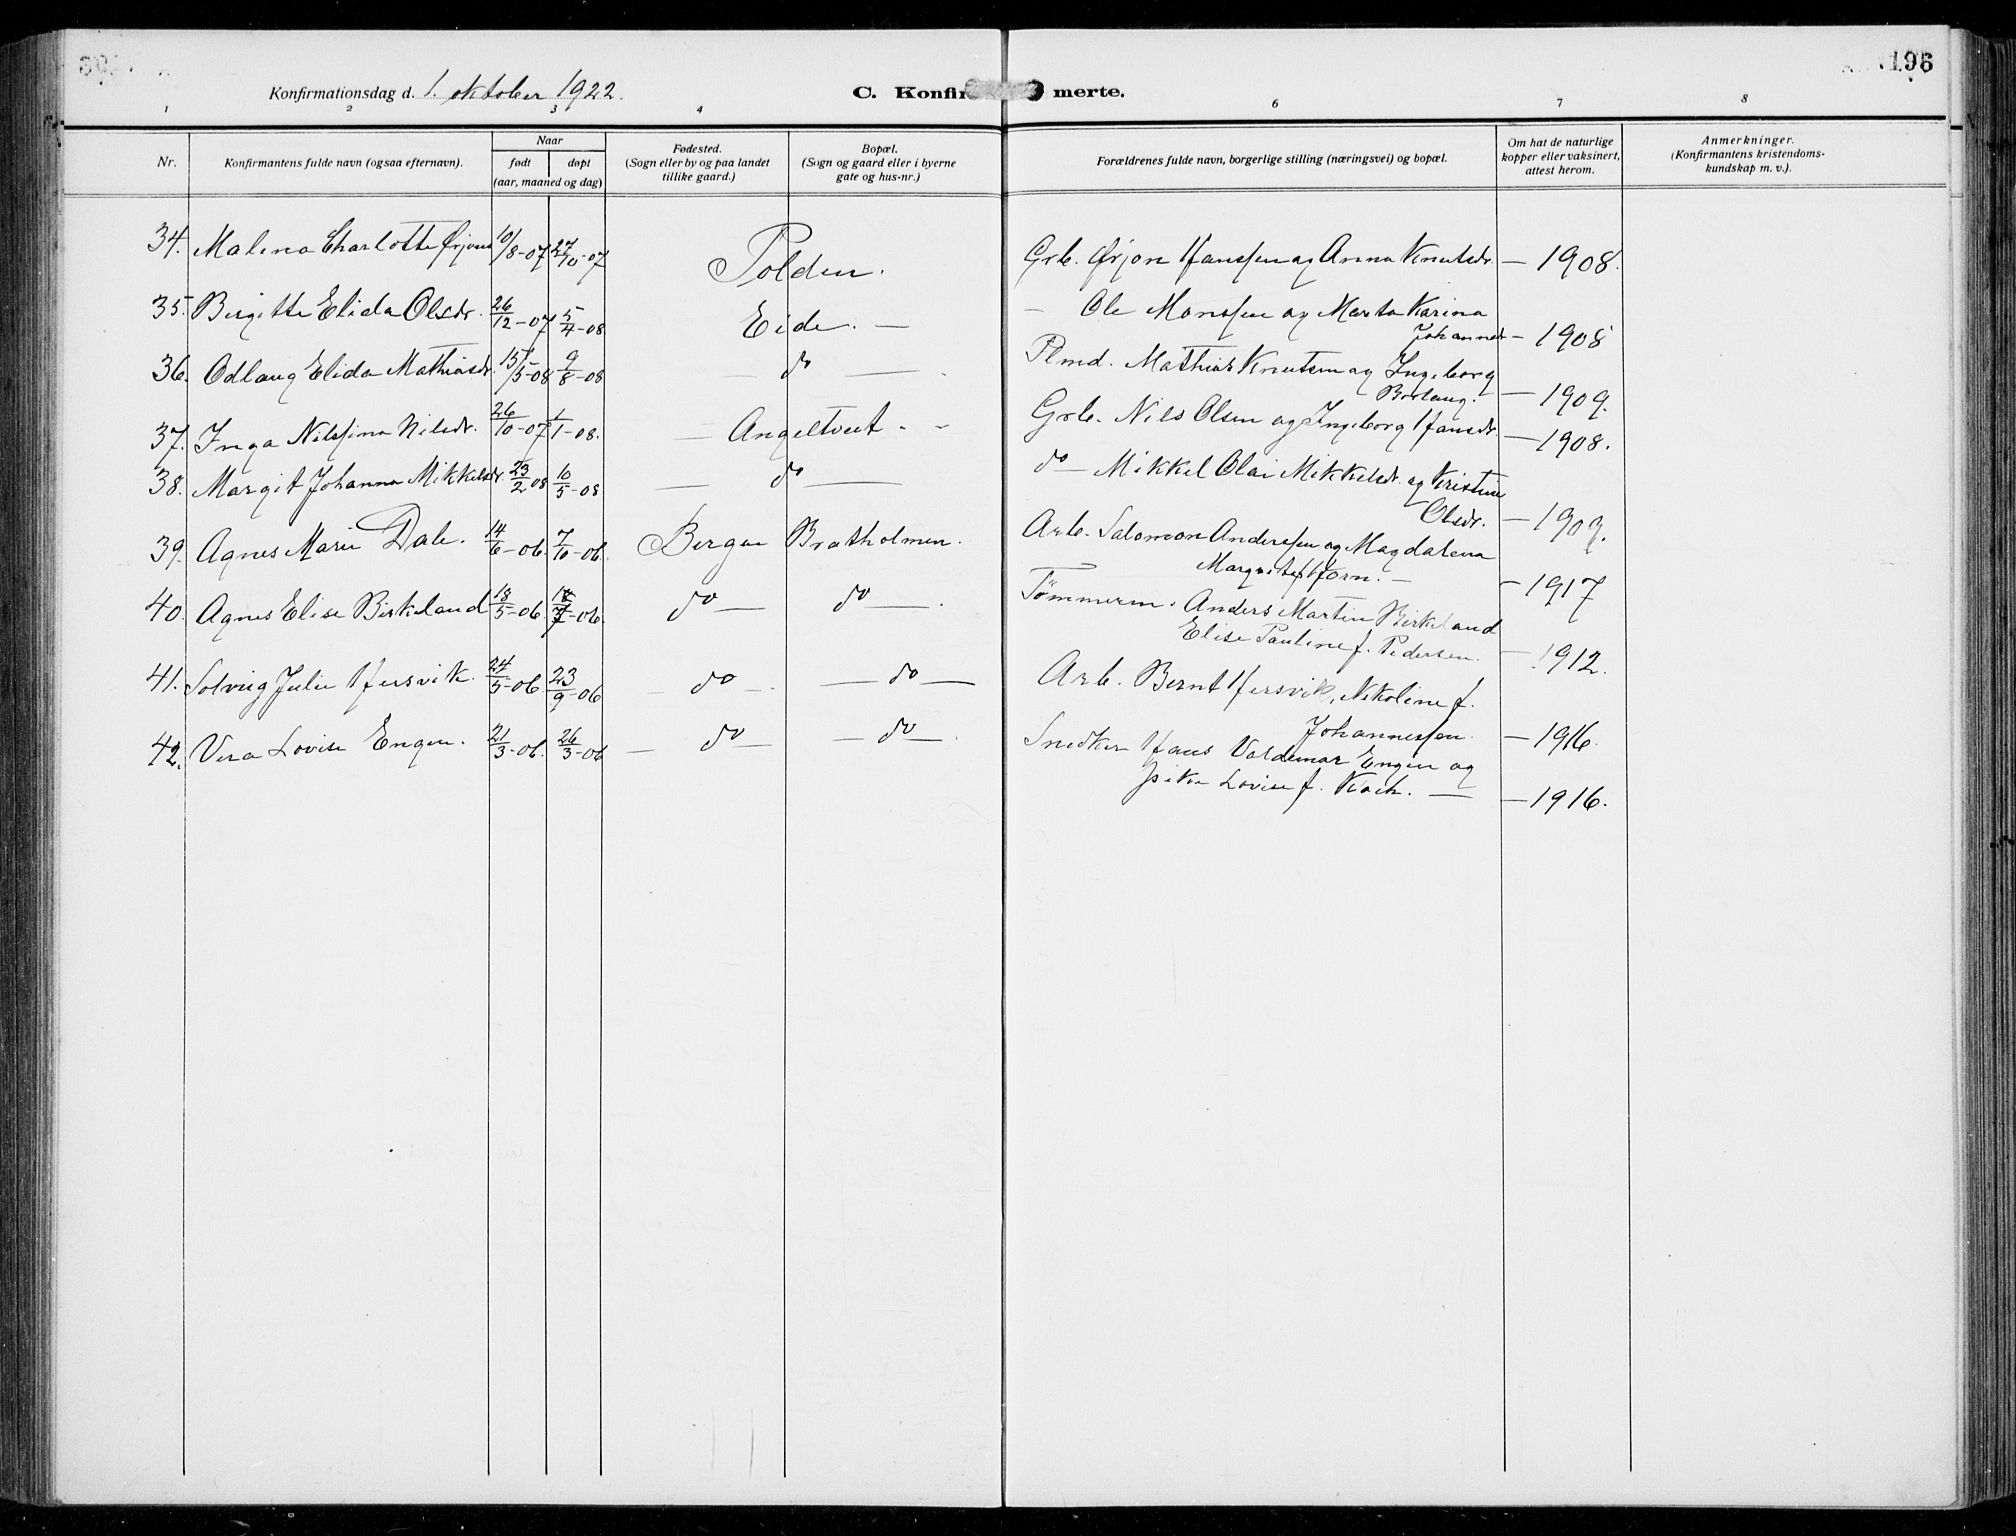 196
Konfirmationsdag d. 1. oktober 1922.
C. Konfir merte.
1 2 3 4 6 7 8
Nr.
Konfirmantens fulde navn (ogsaa efternavn).
Naar
født døpt
(aar, maaned og dag)
Fødested.
(Sogn eller by og paa landet
tillike gaard.)
Bopæl.
(Sogn og gaard eller i byerne
gate og hus-nr.)
Forældrenes fulde navn, borgerlige stilling (næringsvei) og bopæl.
Om hat de naturlige
kopper eller vaksinert,
attest herom.
Anmerkninger.
(Konfirmantens kristendoms-
kundskap m. v.).
34. Malena Charlotte Ørjons 10/8-07 27/10-07 Polden. Grb. Ørjon Hanssen og Anna Knutsdr. — 1908.
35. Birgitte Elida Olsdr. 26/12-07 5/4-08 Eide. — — Ole Monssen og Marta Karina
Johannesdr — 1908
36. Odlaug Elida Mathiasdr. 15/5-08 9/8-08 — do — Plmd. Mathias Knutsen og Ingeborg
Botlaug. — 1909.
37. Inga Nilssina Nilsdr. 26/10-07 1/1-08. — Angeltveit - - Grb. Nils Olsen og Ingeborg Hansdr. — 1908.
38. Margit Johanna Mikkelsdr. 23/2 08 10/5-08 — do — do — Mikkel Olai Mikkelsdr. og Kristine
Olsdr. — 1903.
39. Agnes Marie Dale. 14/6-06. 7/10-06. Bergen Bratholmen. Arb. Salomon Anderssen og Magdalena
Margrete Hjorn. — — 1917
40. Agnes Elise Birkeland 18/5-06. -06. do — do —. Tømmerm. Anders Martin Birkeland
Elise Pauline f. Pedersen. — 1912.
41. Solveig Julie Hersvik. 24/5-06. 23/9-06 — do —. — do — Arb. Bernt Hersvik, Nikoline f.
Johannessen. — 1916.
42. Vera Lovise Engen. 21/3-06. 26/3-06 — do — — do —. Snedker Hans Valdemar Engen og
Lovise f. Koch. — — 1916.